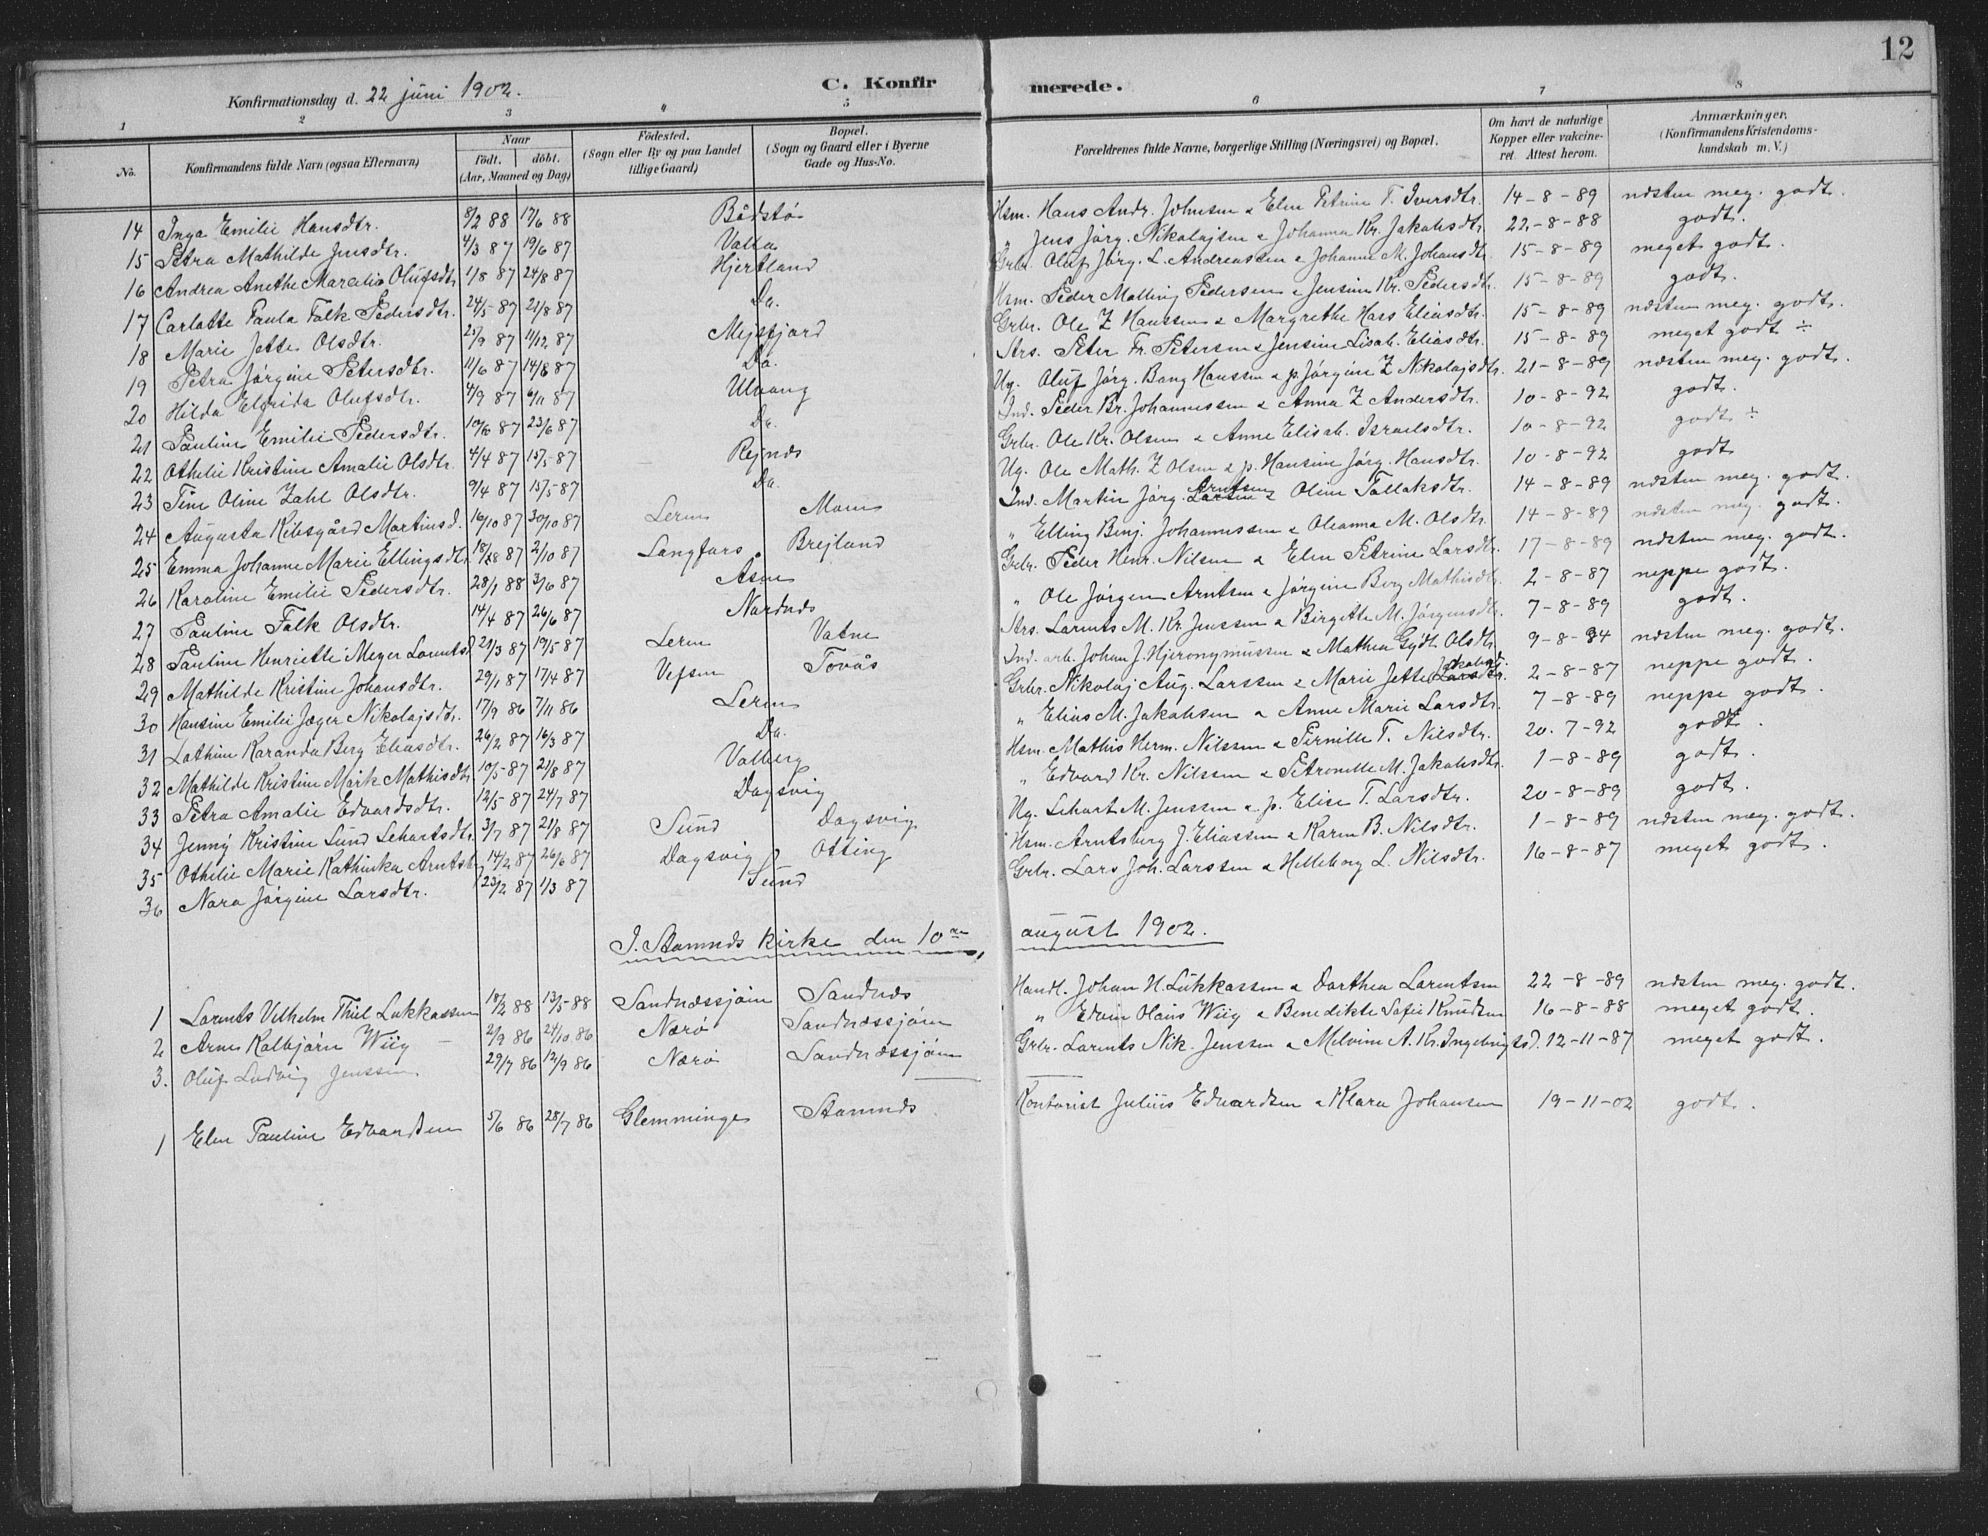 12
Konfirmationsdag d. 22 juni 1902. C. Konfirmerede.
1 2 3 4 5 6 7 8
No. Konfirmandens fulde Navn (ogsaa Efternavn) Naar født. døbt. (Aar, Maaned og Dag) Fødested. (Sogn eller By og paa Landet tillige Gaard) Bopæl. (Sogn og Gaard eller i Byerne Gade og Hus-No. Forældrenes fulde Navne, borgerlige Stilling (Næringsvei) og Bopæl. Om havt de naturlige Kopper eller vakcineret. Attest herom. Anmærkninger. (Konfirmandens Kristendomskundskab m. V.)
14 Inga Emilie Hansdtr. 8/2 88 17/6 88 Bådstø Hsm. Hans Andr. Johnsen & Elen Petrine T. Iversdtr. 14-8-89 næsten meg. godt.
15 Petra Mathilde Jensdtr. 4/3 87 19/6 87 Valla " Jens Jørg. Nikolajsen & Johanna Kr. Jakobsdtr. 22-8-88 godt.
16 Andrea Anethe Marcelie Olufsdtr. 1/8 87 24/8 87 Hjertland Grbr. Oluf Jørg. L. Andreassen & Johanne M. Johansdtr. 15-8-89 meget godt.
17 Carlotte Paula Falk Pedersdtr. 24/5-87 21/8 87 Do. Hsm. Peder Malling Pedersen & Jensine Kr. Pedersdtr. 15-8-89 godt.
18 Marie Jette Olsdtr. 25/9 87 11/12 87 Mejsfjord Grbr. Ole Z Hanssen & Margrethe Hass Eliasdtr. 15-8-89 næsten meg. godt.
19 Petra Jørgine Petersdtr. 11/6 87 14/8 87 Do. Strs. Peter Fr. Petersen & Jensine Lisab. Eliasdtr. 15-8-89 meget godt ÷
20 Hilda Elfrida Olufsdtr. 4/9 87 6/11 87 Ulvang Ug. Oluf Jørg. Bang Hanssen & p. Jørgine Z Nikolajsdtr. 21-8-89 næsten meg. godt.
21 Pauline Emilie Pedersdtr. 87 23/6 87 Do. Ind. Peder Br. Johannessen & Anna Z Andersdtr. 10-8-92 godt.
22 Othelie Kristine Amalie Olsdtr. 4/4 87 15/5-87 Rejnes Grbr. Ole Kr. Olsen & Anne Elisab. Israelsdtr. 10-8-92 godt ÷
23 Tine Oline Zahl Olsdtr. 9/4 87 15/5-87 Do. Ug. Ole Math. Z Olsen & p. Hansine Jørg. Hansdtr. 10-8-92 godt
24 Augusta Kibsgård Martinsd. 16/10 87 30/10 87 Leren Moen Ind. Martin Jørg. Larsen Arntsen & Oline Tollaksdtr. 14-8-89 næsten meg. godt.
25 Emma Johanne Marie Ellingsdtr. 18/8 87 2/10 87 Langfors Brejland " Elling Benj. Johannessen & Oleanna M. Olsdtr. 14-8-89 næsten meg. godt.
26 Karoline Emilie Pedersdtr. 28/1 88 3/6 87 Asen Grbr. Peder Henr. Nilsen & Elen Petrine Larsdtr. 17-8-89 næsten meg. godt.
27 Pauline Falk Olsdtr. 14/4 87 26/6 87 Nordnes " Ole Jørgen Arntsen & Jørgine Berg Mathisdtr. 2-8-87 neppe godt.
28 Pauline Henriette Meyer Lorentsd 21/3 87 19/5 87 Leren Vatne Strs. Lorents M. Kr. Jenssen & Birgette M. Jørgensdtr. 7-8-89 godt.
29 Mathilde Kristine Johansdtr. 29/1 87 17/4 87 Vefsen Tovås Ind. arb. Johan J. Hjeronymussen & Mathea Gjdt. Olsdtr. 9-8-94 næsten meg. godt.
30 Hansine Emilie Jæger Nikolajsdtr. 17/9 86 7/11 86 Leren Grbr. Nikolaj Aug. Larssen & Marie Jette Larsdtr. Jakobsd. 2-8-87 neppe godt.
31 Lathine Karanda Berg Eliasdtr. 26/2 87 16/3 87 Do. " Elias M. Jakobsen & Anne Marie Larsdtr. 7-8-89 neppe godt.
32 Mathilde Kristine Mørk Mathisdtr. 10/5-87 21/8 87 Valberg Hsm. Mathis Herm. Nilssen & Pernille T. Nilsdtr. 20-7-92 godt.
33 Petra Amalie Edvardsdtr. 12/5-87 24/7 87 Dagsvig " Edvard Kr. Nilssen & Petronelle M. Jakobsdtr. 1-8-89 godt.
34 Jenny Kristine Lund Lehartsdtr. 3/7 87 21/8 87 Sund Dagsvig Ug. Lehart M. Jenssen & p. Elise T. Larsdtr. 20-8-89 godt.
35 Othelie Marie Kathinka Arntsb. 14/2 87 26/6 87 Dagsvig Otting Hsm. Arntsberg J. Eliassen & Karen B. Nilsdtr. 1-8-89 næsten meg. godt.
36 Nora Jørgine Larsdtr. 23/2 87 1/3 87 Sund Grbr. Lars Joh. Larssen & Helleborg L. Nilsdtr. 16-8-87 meget godt.
I. Stamnes Kirke den 10de august 1902.
1 Lorents Vilhelm Thiel Lukkassen 18/2 88 13/5-88 Sandnæssjøen Sandnes Handl. Johan N. Lukkassen & Dorthea Lorentsen 22-8-89 næsten meg. godt.
2 Arne Kolbjørn Wiig 2/9 86 24/10 86 Nærø Sandnæssjøen " Edvin Olaus Wiig & Benedikte Sofie Knudsen 16-8-88 meget godt.
3. Oluf Ludvig Jenssen 29/7 86 12/9 86 Nærø Sandnæssjøen Grbr. Lorents Nik. Jenssen & Melvine A. Kr. Ingebrigtsd. 12-11-87 meget godt.
1 Elen Pauline Edvardsen 5/6 86 28/7 86 Glemminge Stamnes Kontorist Julius Edvardsen & Klara Johansen 19-11-02 godt.